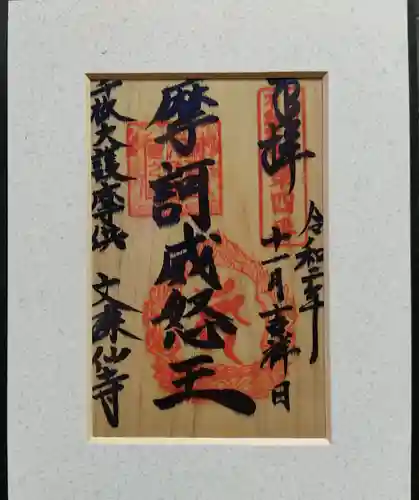 奉拝
令和二年
十一月吉祥日
摩訶威怒王
秋大護摩供
文殊仙寺